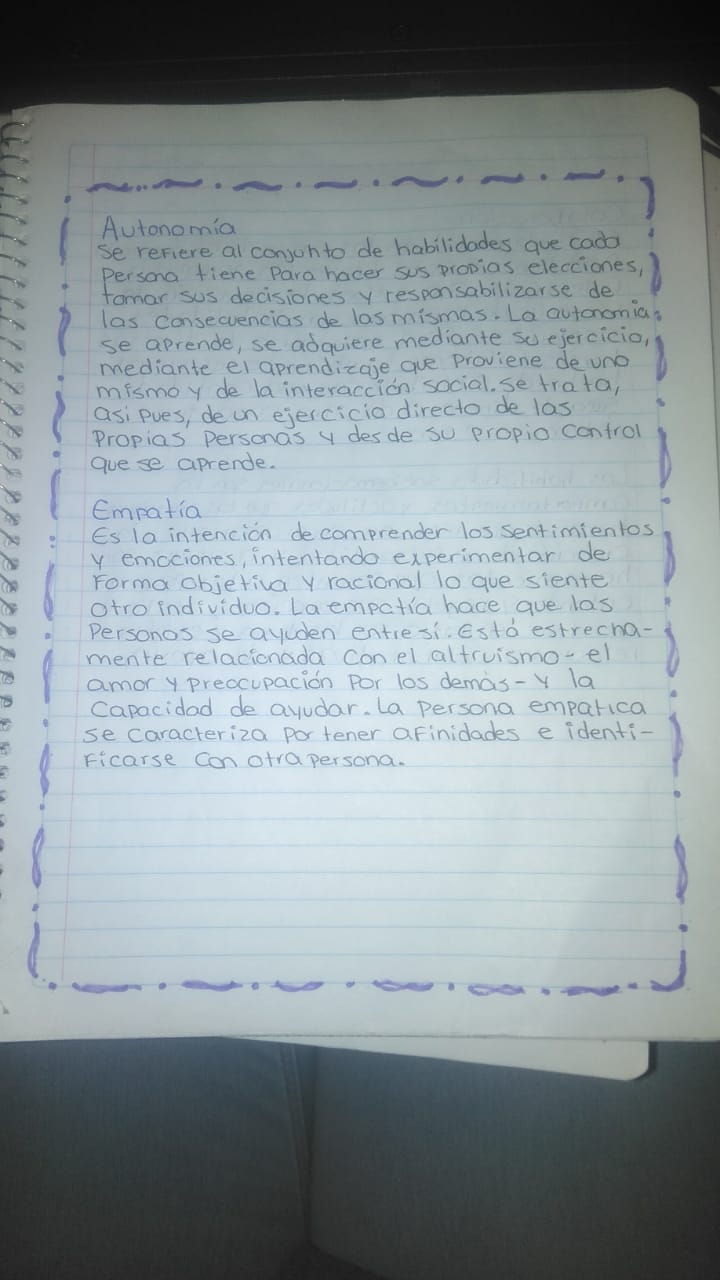 Autonomía
se refiere al conjunto de habilidades que cada
persona tiene para hacer sus propias elecciones,
tomar sus decisiones y responsabilizarse de
las consecuencias de las mismas. La autonomía
se aprende, se adquiere mediante su ejercicio,
mediante el aprendizaje que proviene de uno
mismo y de la interacción social. se trata,
asi pues, de un ejercicio directo de las
propias personas y desde su propio control
que se aprende.
Empatía
Es la intención de comprender los sentimientos
y emociones, intentando experimentar de
forma objetiva y racional lo que siente
otro individuo. La empatía hace que las
personas se ayuden entre sí. Está estrecha-
mente relacionada con el altruismo - el
amor y preocupación por los demás - y la
capacidad de ayudar. La persona empatica
se caracteriza por tener afinidades e identi-
ficarse con otra persona.